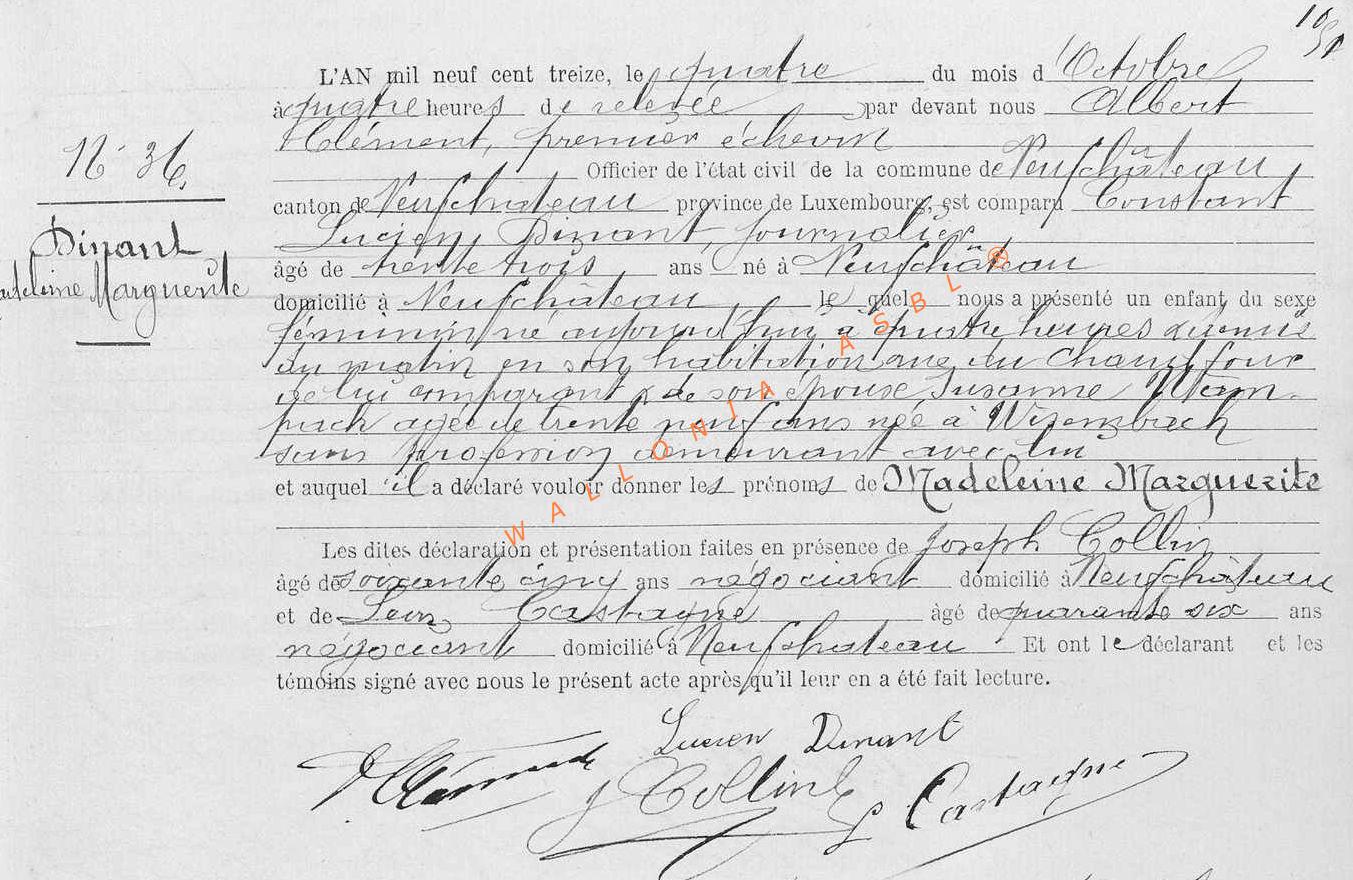 10
N° 36.
Dinant
Madeleine Marguerite
L'AN mil neuf cent treize, le quatre du mois d'Octobre
à quatre heures de relevée par devant nous Albert
Clément, premier échevin
Officier de l'état civil de la commune de Neufchâteau
canton de Neufchateau province de Luxembourg, est comparu Constant
Lucien Dinant, journalier
âgé de trente trois ans né à Neufchâteau
domicilié à Neufchâteau le quel nous a présenté un enfant du sexe
féminin né aujourd'hui à quatre heures
du matin en son habitation rue du Chaud four
de lui comparant & de son épouse Susanne Wam-
pach agée de trente neuf ans née à Wisembach
sans profession demeurant avec lui
et auquel il a déclaré vouloir donner les prénoms de Madeleine Marguerite
Les dites déclaration et présentation faites en présence de Joseph Collin
âgé de soixante cinq ans négociant domicilié à Neufchâteau
et de Léon Castagne âgé de quarante six ans
négociant domicilié à Neufchateau Et ont le déclarant et les
témoins signé avec nous le présent acte après qu'il leur en a été fait lecture.
Lucien Dinant
A Clément
J Collin
L Castagne
WALLONIA ASBL ®